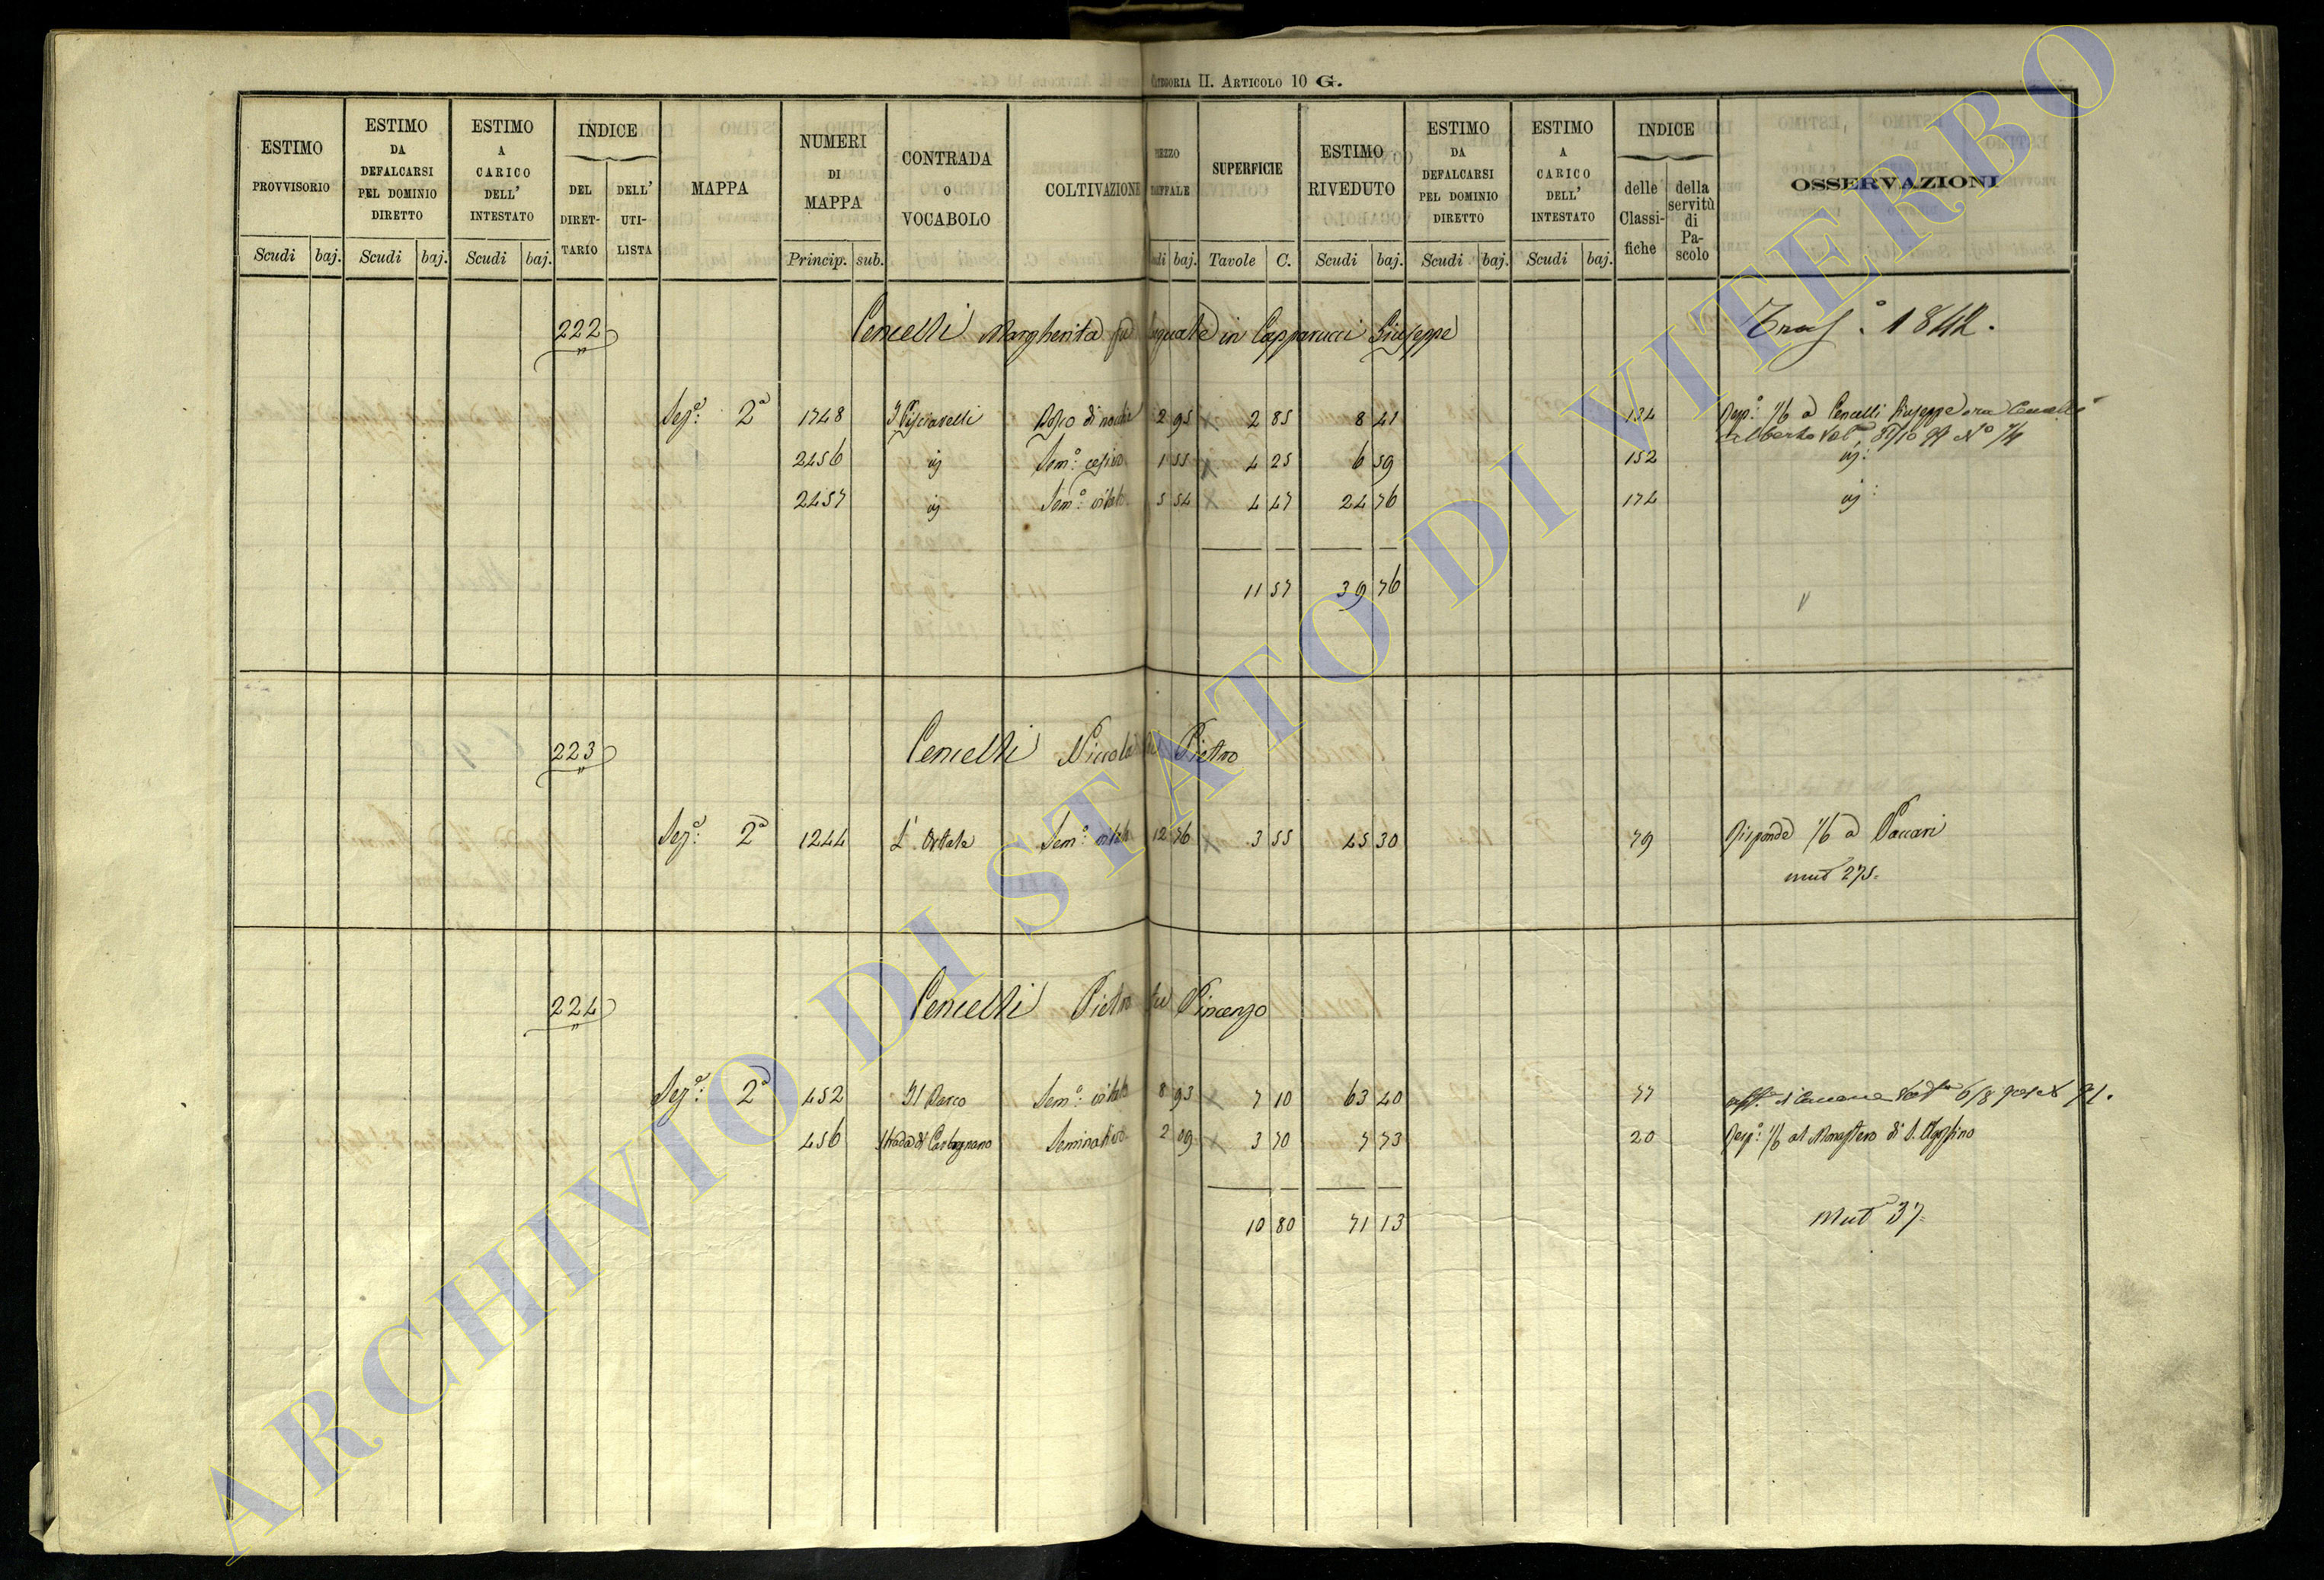 CATEGORIA II. ARTICOLO 10 G.
ESTIMO PROVVISORIO Scudi baj.
ESTIMO DA DEFALCARSI PEL DOMINIO DIRETTO Scudi baj.
ESTIMO A CARICO DELL' INTESTATO Scudi baj.
INDICE DEL DIRETTARIO DELL' UTILISTA
MAPPA
NUMERI DI MAPPA Princip. sub.
CONTRADA O VOCABOLO
COLTIVAZIONE
baj.
SUPERFICIE Tavole C.
ESTIMO RIVEDUTO Scudi baj.
ESTIMO DA DEFALCARSI PEL DOMINIO DIRETTO Scudi baj.
ESTIMO A CARICO DELL' INTESTATO Scudi baj.
INDICE delle Classifiche della servitù di Pascolo
OSSERVAZIONI
222 Cencelli Margherita in Capparucci Giuseppe
Sez.e 2a 1748 2 95 2 85 8 41 134 Risp.e 1/6 a Cencelli Giuseppe ora
2456 1 55 4 25 6 59 152
2457 5 54 4 47 24 76 174
11 57 39 76
223 Cencelli Niccola fu Pietro
Sez.e 2a 1244 Sem.o vitato 12 76 3 55 45 30 79 Risponde 1/6 a Vaccari
mut 275.
224 Cencelli Pietro fu Vincenzo
Sez.e 2a 452 Il Parco Sem.o vitato 8 93 7 10 63 40 77
456 Strada di Carbognano Seminativo 2 09 3 70 7 73 20 Risp.e 1/6 al Monastero di S. Agostino
10 80 71 13 Mut 37.
ARCHIVIO DI STATO DI VITERBO